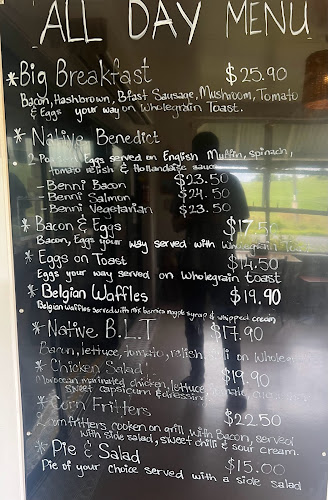 ALL DAY MENU
*Big Breakfast $25.90
Bacon, Hashbrown, B/fast Sausage, Mushroom, Tomato
& Eggs your way on Wholegrain Toast.
*Native Benedict
2 Poached Eggs served on English Muffin, spinach,
tomato relish & Hollandaise sauce
- Benni Bacon $23.50
- Benni Salmon $24.50
- Benni Vegetarian $23.50
*Bacon & Eggs $17.50
Bacon, Eggs your way served with Wholegrain
*Eggs on Toast $14.50
Eggs your way served on Wholegrain toast
*Belgian Waffles $19.90
Belgian Waffles served with mix berries maple syrup & whipped cream
*Native B.L.T $17.90
Bacon, lettuce, tomato, relish, on Wholegrain
*Chicken Salad $19.90
Moroccan marinated chicken, lettuce, tomato
sweet capsicum & dressing
*Corn Fritters $22.50
Corn fritters cooken on grill with Bacon, served
with side salad, sweet chilli & sour cream.
*Pie & Salad $15.00
Pie of your choice served with a side salad